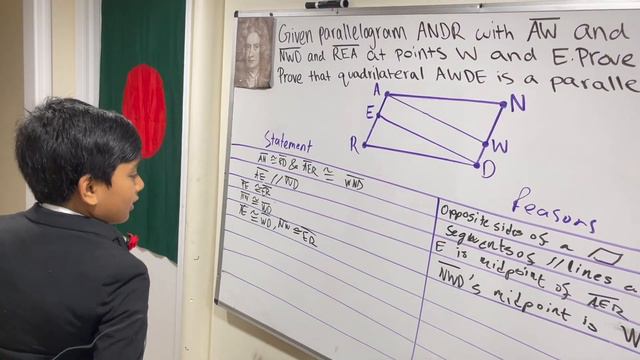 Given parallelogram ANDR with AW and
NWD and REA at points W and E. Prove
Prove that quadrilateral AWDE is a paralle
A
N
E
W
R
D
Statement
AE // WD
AE ≅ ER
NW ≅ WD
AE ≅ WD, NW ≅ ER
Reasons
Opposite sides of a ▱
Segments of // lines a
E is midpoint of AER
NWD's midpoint is W